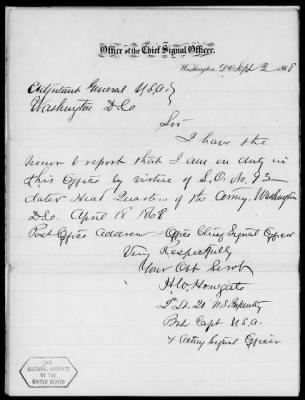 Office of the Chief Signal Officer,
Washington, D.C. Sept 2 1868
Adjutant General U.S.A.
Washington D.C.
Sir
I have the
honor to report that I am on duty in
this Office by virtue of S.O. No. 92
dated Head Quarters of the Army, Washington
D.C. April 18 1868
Post Office Address Office Chief Signal Officer
Very Respectfully
Your Obt Servt
H.W. Howgate
2d Lt U.S. Infantry
Bvt Capt U.S.A.
& Acting Signal Officer
THE
NATIONAL ARCHIVES
OF THE
UNITED STATES